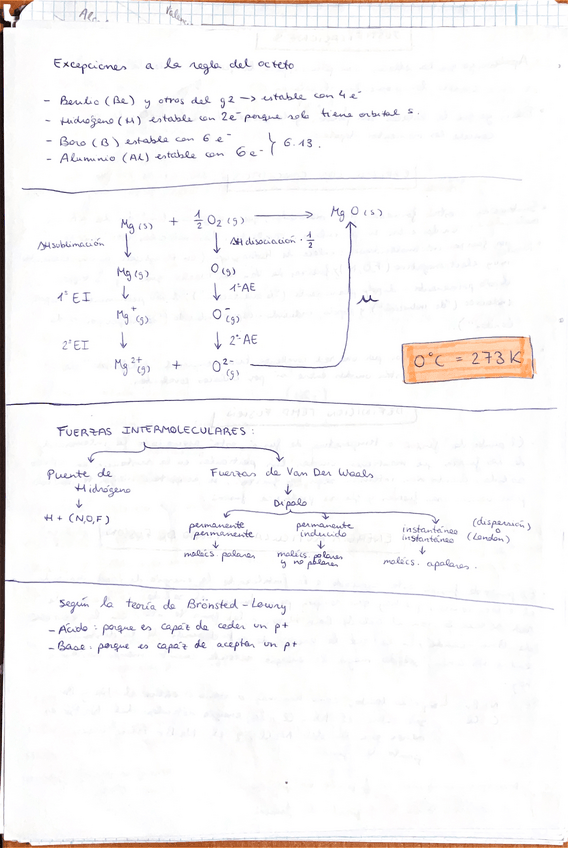 Excepciones a la regla del octeto
- Berilio (Be) y otros del g2 → estable con 4 e⁻
- Hidrógeno (H) estable con 2e⁻ porque solo tiene orbital s.
- Boro (B) estable con 6 e⁻
- Aluminio (Al) estable con 6 e⁻ } G.13.
Mg (s) + 1/2 O₂ (g) → MgO (s)
ΔHsublimación ↓ ↓ ΔHdisociación · 1/2
Mg (g) O (g)
1ª EI ↓ ↓ 1ª AE
Mg⁺ (g) O⁻ (g)
2ª EI ↓ ↓ 2ª AE
Mg²⁺ (g) + O²⁻ (g)
0°C = 273 K
FUERZAS INTERMOLECULARES:
Puente de Hidrógeno
↓
H + (N,O,F)
Fuerzas de Van Der Waals
↓
Dipolo
permanente
permanente
↓
molécs. polares
permanente
inducido
↓
molécs. polares
y no polares
instantáneo (dispersión)
instantáneo o (London)
↓
molécs. apolares.
Según la teoría de Brönsted-Lowry
- Ácido: porque es capaz de ceder un p+
- Base: porque es capaz de aceptar un p+